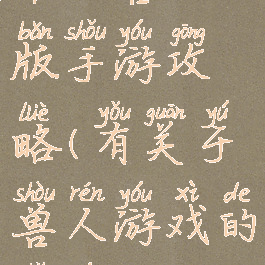 bǎn shǒu yóu gōng
版手游攻
lüè yǒu guān yú
略(有关于
shòu rén yóu xì de
兽人游戏的